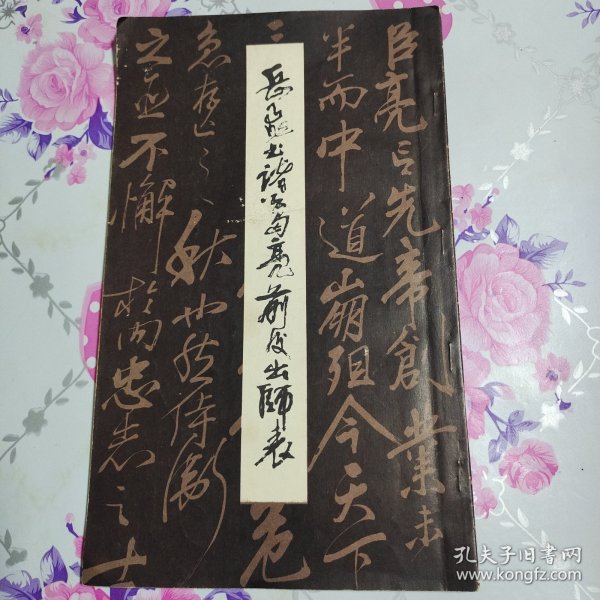 臣亮言先帝創業未
半而中道崩殂今天下
三
危
急存亡之秋也然侍衛
之臣不懈於内忠志之士
岳飛书諸葛亮前後出師表
孔夫子旧书网
www.kongfz.com